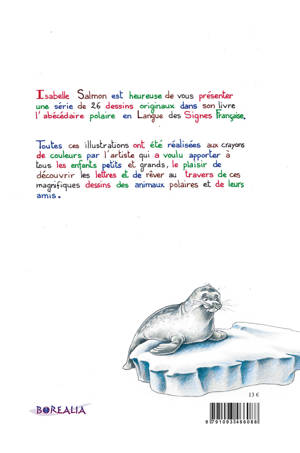 Isabelle Salmon est heureuse de vous présenter
une série de 26 dessins originaux dans son livre
l'abécédaire polaire en Langue des Signes Française.
Toutes ces illustrations ont été réalisées aux crayons
de couleurs par l'artiste qui a voulu apporter à
tous les enfants petits et grands, le plaisir de
découvrir les lettres et de rêver au travers de ces
magnifiques dessins des animaux polaires et de leurs
amis.
13 €
BOREALIA
9791093466088